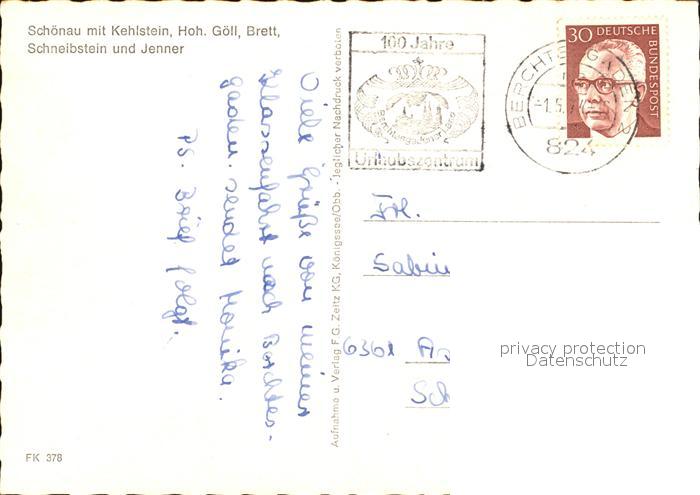 Schönau mit Kehlstein, Hoh. Göll, Brett,
Schneibstein und Jenner
Viele Grüße von meiner
Klassenfahrt nach Berchtes-
gaden. sendet Monika.
PS. Brief folgt.
FK 378
Aufnahme u. Verlag F.G. Zeitz KG, Königssee/Obb. - Jeglicher Nachdruck verboten
100 Jahre
Berchtesgadener Land
Urlaubszentrum
BERCHTESGADEN
-1.5.
824
30 DEUTSCHE
BUNDESPOST
Frl.
Sabin
6361
Sch
privacy protection
Datenschutz